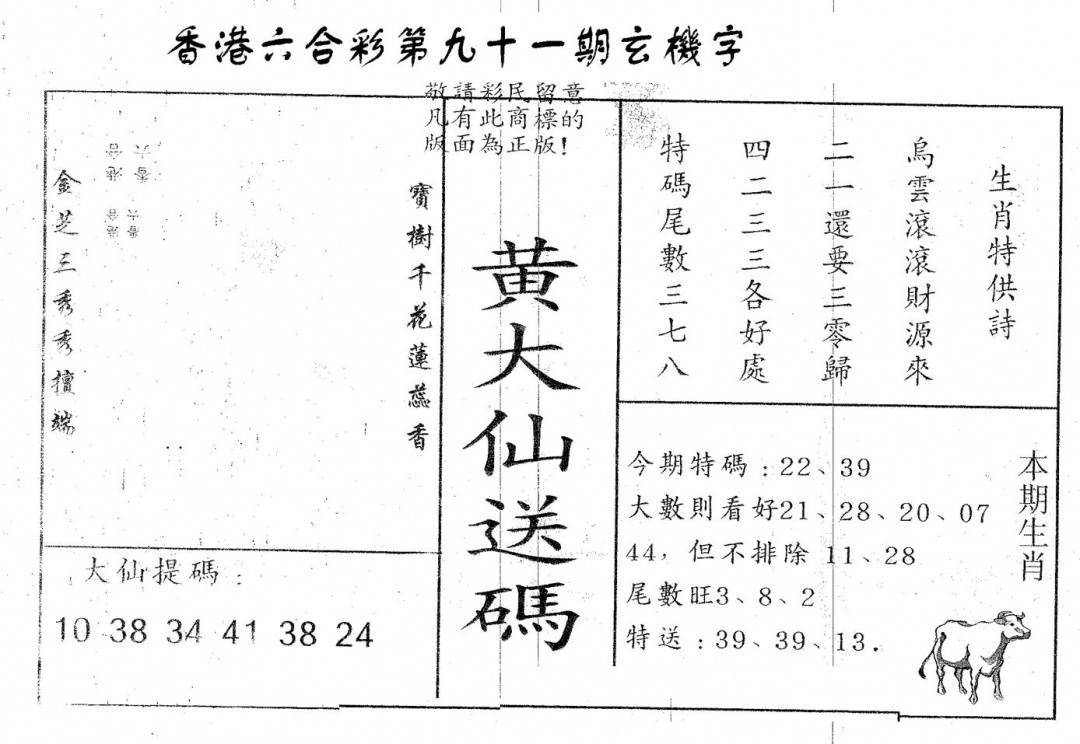 香港六合彩第九十一期玄機字
敬請彩民留意
凡有此商標的
版面為正版!
生肖特供詩
烏雲滾滾財源來
二一還要三零歸
四二三三各好處
特碼尾數三七八
黃大仙送碼
寶樹千花蓮蕊香
金芝三秀秀擅端
香港
六合
香港
六合
大仙提碼:
10 38 34 41 38 24
本期生肖
今期特碼:22、39
大數則看好21、28、20、07
44,但不排除 11、28
尾數旺3、8、2
特送:39、39、13.